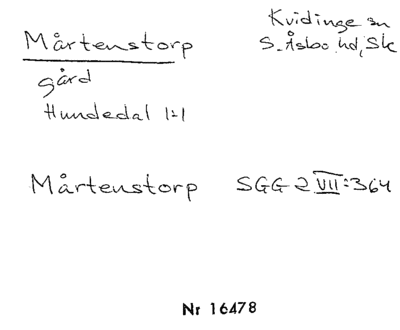 Mårtenstorp
Kvidinge sn
S. Åsbo hd, Sk
gård
Hundedal 1:1
Mårtenstorp SGG 2 VII:364
Nr 16478